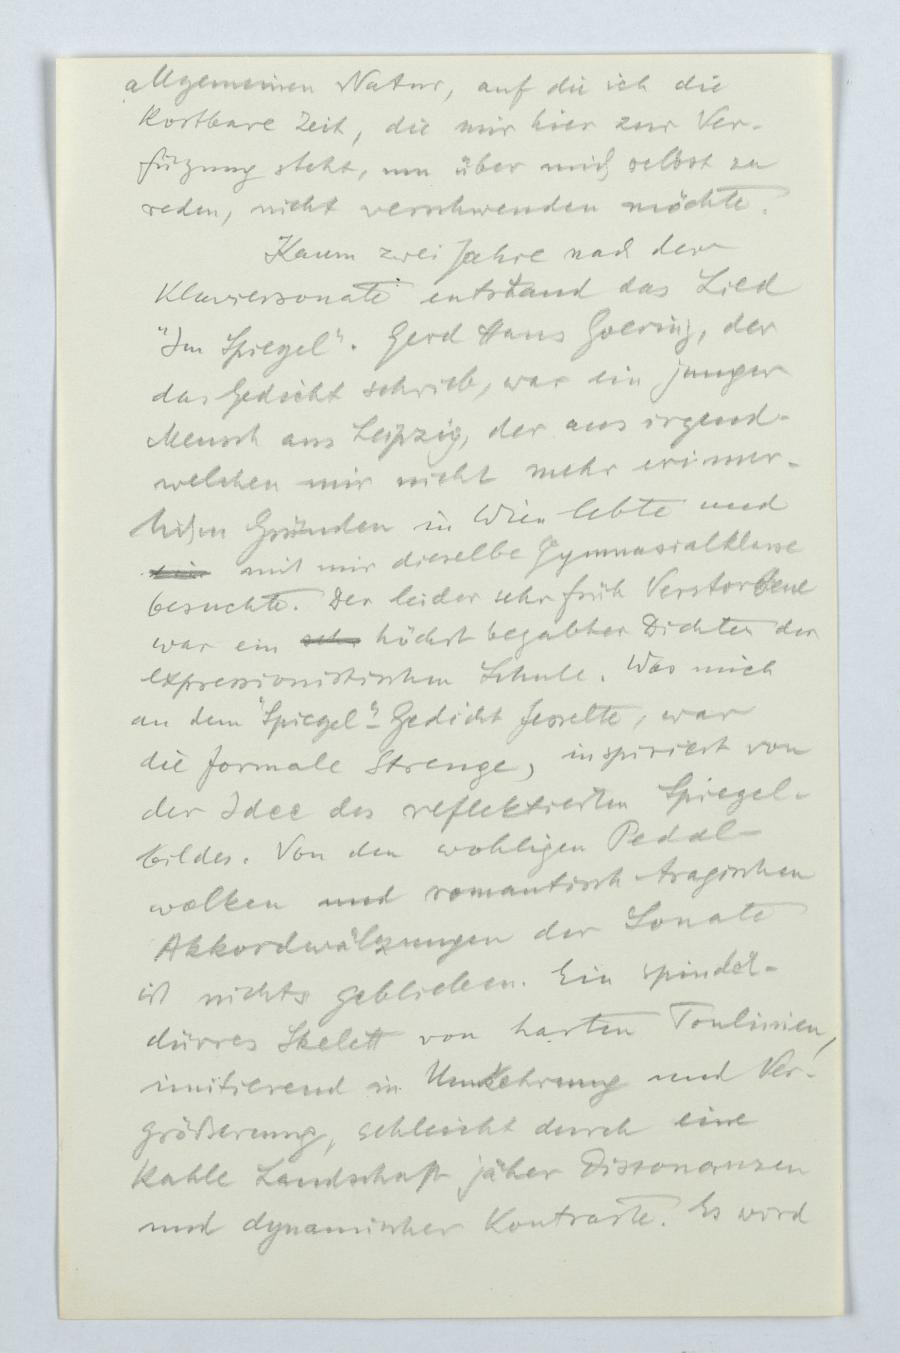 allgemeinen Natur, auf die ich die
kostbare Zeit, die mir hier zur Ver-
fügung steht, um über mich selbst zu
reden, nicht verschwenden möchte.
Kaum zwei Jahre nach der
Klaviersonate entstand das Lied
"Im Spiegel". Gerd Hans Goering, der
das Gedicht schrieb, war ein junger
Mensch aus Leipzig, der aus irgend-
welchen mir nicht mehr erinner-
lichen Gründen in Wien lebte und
mit mir dieselbe Gymnasialklasse
besuchte. Der leider sehr früh Verstorbene
war ein sehr höchst begabter Dichter der
expressionistischen Schule. Was mich
an dem "Spiegel"-Gedicht fesselte, war
die formale Strenge, inspiriert von
der Idee des reflektierten Spiegel-
bildes. Von den wohligen Pedal-
wolken und romantisch-tragischen
Akkordwälzungen der Sonate
ist nichts geblieben. Ein spindel-
dürres Skelett von harten Tonlinien,
imitierend in Umkehrung und Ver-
größerung, schleicht durch eine
kahle Landschaft jäher Dissonanzen
und dynamischer Kontraste. Es wird